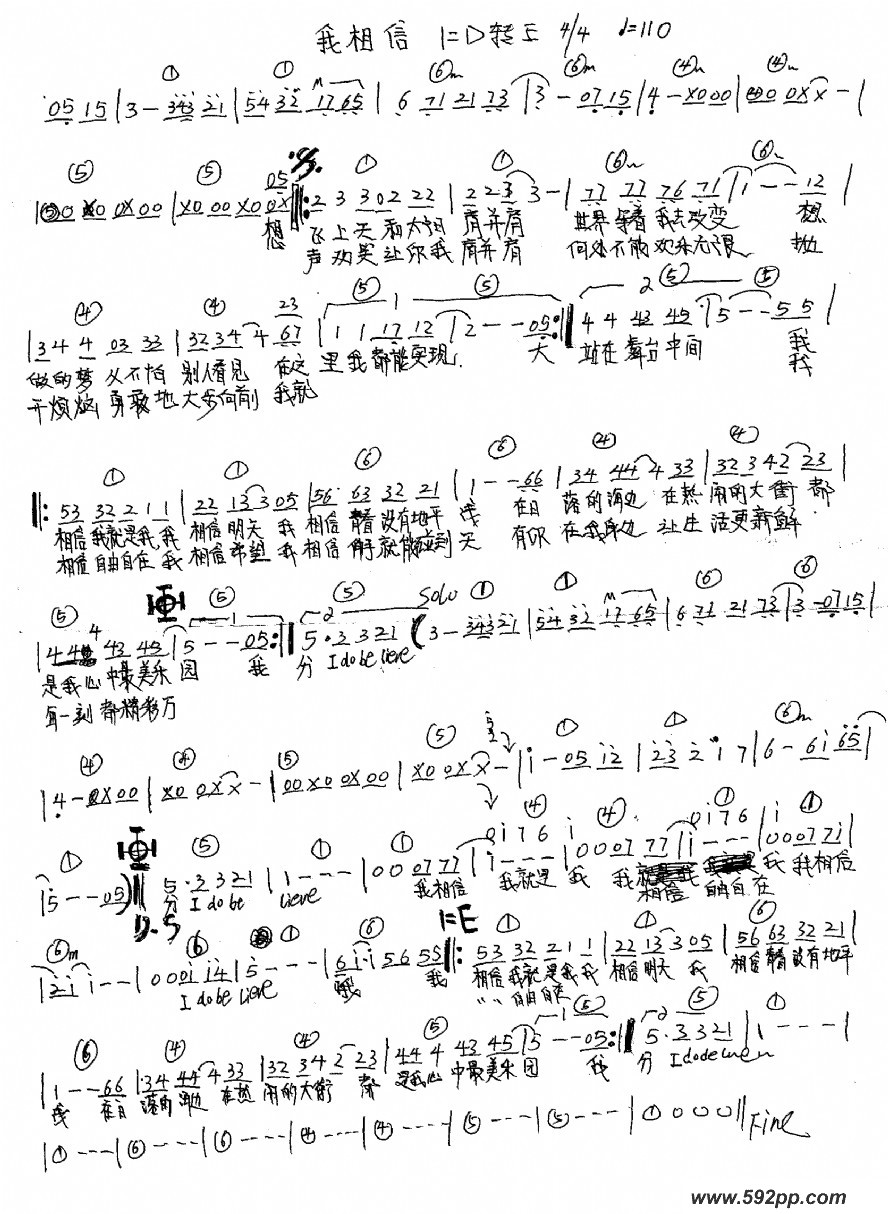 我相信 1=D转E 4/4 ♩=110
① ① ⑥m ⑥m ④ ④
05 15 | 3 - 343 21 | 54 32 17 65 | 6 71 21 73 | 3 - 07 15 | 4 - x0 00 | 00 0x x - |
⑤ ⑤ ① ① ⑥ ⑥
05
00 x0 0x 00 | x0 00 x0 0x 2 3 3 02 22 | 2 23 3 - | 77 77 76 71 | 1 - - 12 |
想 飞上天 和太阳 肩并肩 世界等着我去改变 想
声欢笑让你我肩并肩 何处不能欢乐无限 抛
④ ④ 23 ⑤ 1 ⑤ 2 ⑤ ⑤
| 3 4 4 03 33 | 32 34 4 67 | 1 1 17 12 | 2 - - 05 :|| 4 4 43 45 | 5 - - 5 5 |
做的梦 从不怕 别人看见 在这 里我都能实现 大 站在舞台中间 我
开烦恼 勇敢地大步向前 我就 我
① ① ⑥ ⑥ ④ ④
||: 53 32 2 1 1 | 22 13 3 05 | 56 63 32 21 | 1 - - 66 | 34 44 4 33 | 32 3 42 23 |
相信我就是我我 相信明天 我 相信青春没有地平 线 在日 落的海边 在热 闹的大街 都
相信自由自在 我相信希望 我相信伸手就能碰到天 有你 在我身边 让生 活更新鲜
⑤ ⑤ 1 2 ⑤ Solo ① ① ⑥ ⑥
| 44 4 43 45 | 5 - - 05 :|| 5 · 3 3 21 ( 3 - 343 21 | 54 32 17 65 | 6 71 21 73 | 3 - 07 15 |
是我心中最美乐 园 我 分 I do be lieve
每一刻都精彩万
④ ④ ⑤ ⑤ ① ① ⑥m
| 4 - 0x 00 | x0 0x x - | 00 x0 0x 00 | x0 0x x - | 1 - 05 12 | 23 2 1 7 | 6 - 61 65 |
① ⑤ ① ① ④ ④ ① ①
0 1 7 6 1 0 1 7 6 1
| 5 - - 05 ) || 5 · 3 3 21 | 1 - - - | 0 0 07 77 | 1 - - - | 0 0 07 77 | 1 - - - | 0 0 07 71 |
分 I do be lieve 我相信 我就是 我 我相信 自由自在 我 我相信
D.S
⑥m ⑥ ① ⑥ 1=E ① ① ⑥
| 21 1 - - | 0 0 01 14 | 5 - - - | 61 1 56 55 ||: 53 32 21 1 | 22 13 3 05 | 56 63 32 21 |
I do be lieve 哦 我 相信我就是我我 相信明天 我 相信青春没有地平
〃 自由自在
⑥ ④ ④ ⑤ 1 ⑤ 2 ⑤ ①
| 1 - - 66 | 34 44 4 33 | 32 34 2 23 | 44 4 43 45 | 5 - - 05 :|| 5 · 3 3 21 | 1 - - - |
线 在日 落的海边 在热 闹的大街 都 是我心 中最美乐 园 我 分 I do
| ① - - - | ⑥ - - - | ⑥ - - - | ④ - - - | ④ - - - | ⑤ - - - | ⑤ - - - | ① 0 0 0 0 || Fine
www.592pp.com